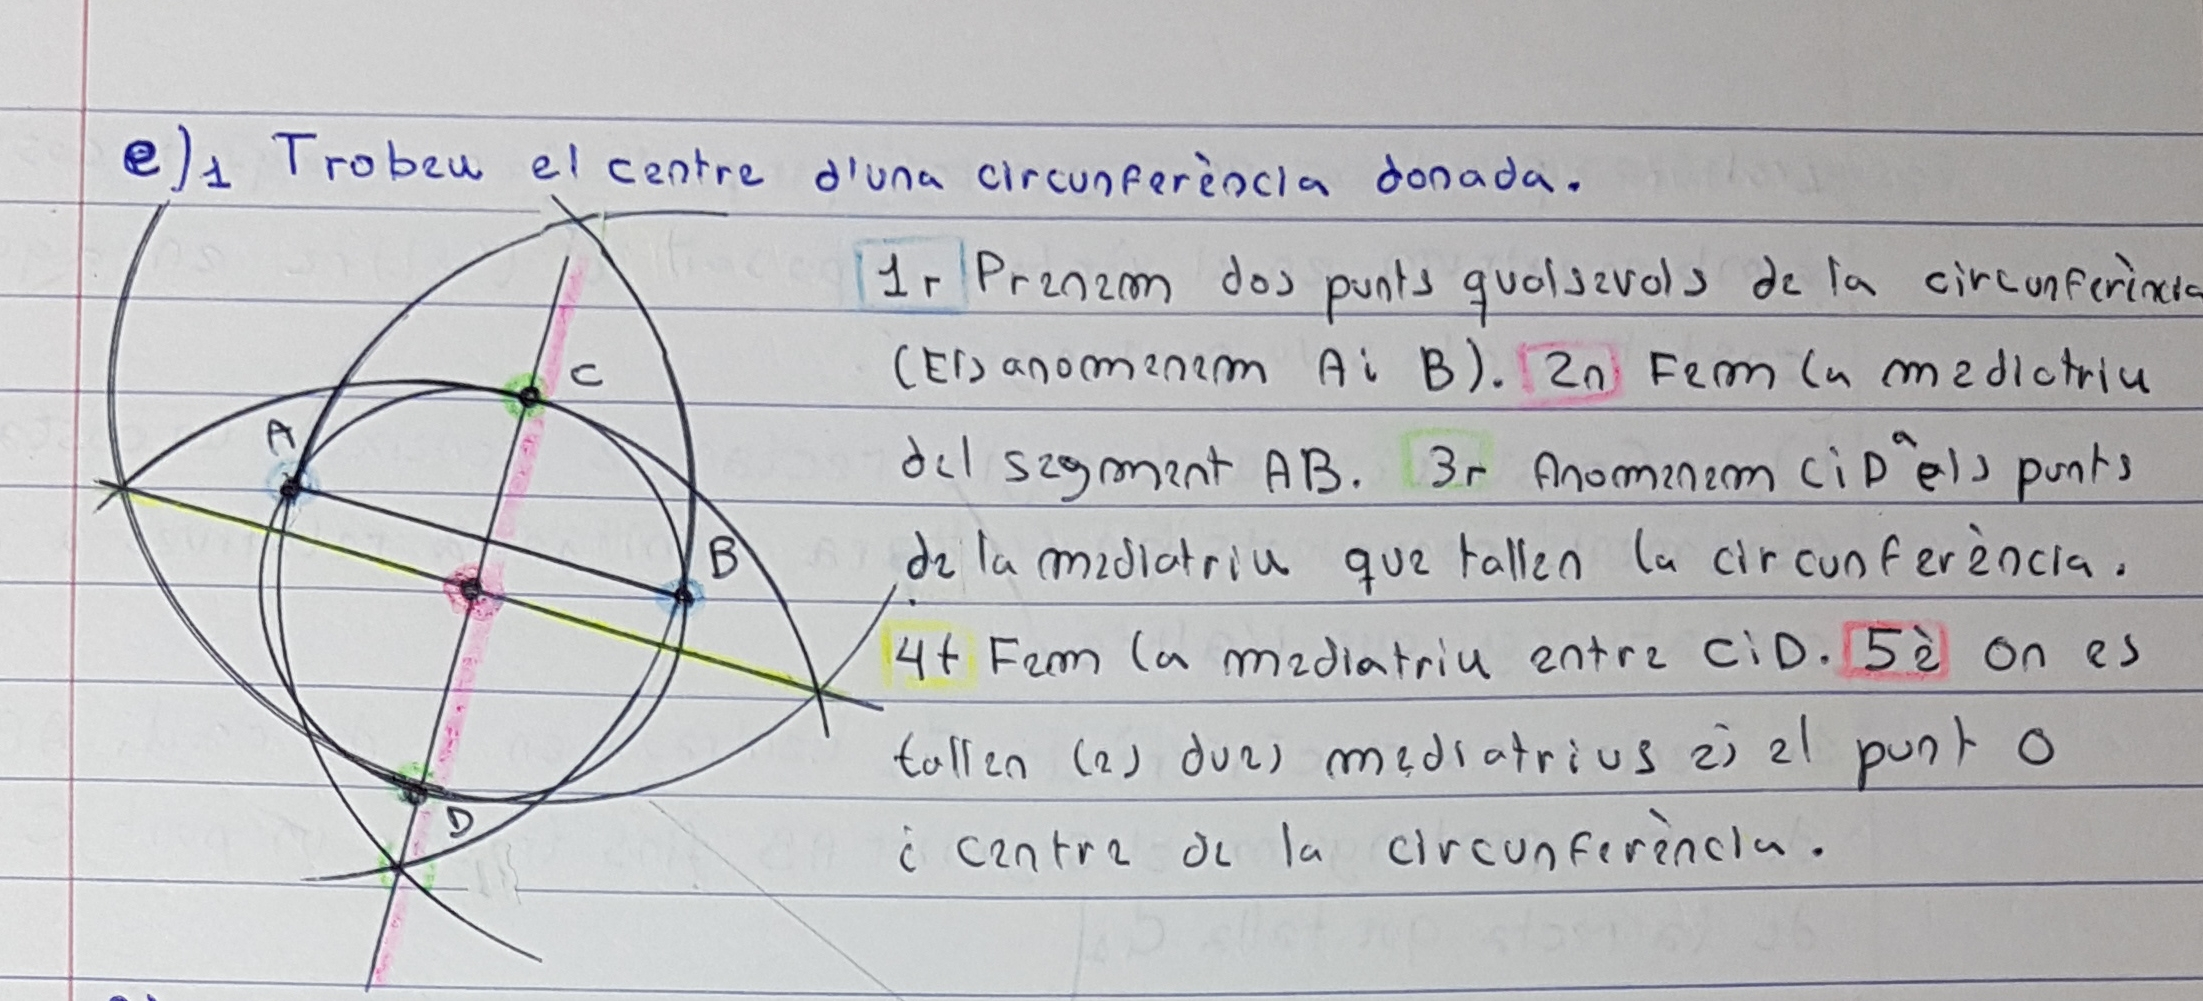 e)1 Trobeu el centre d'una circunferència donada.
1r Prenem dos punts qualsevols de la circunferència
(Els anomenem A i B). 2n Fem la mediatriu
del segment AB. 3r Anomenem C i D a els punts
de la mediatriu que tallen la circunferència.
4t Fem la mediatriu entre C i D. 5è On es
tallen les dues mediatrius és el punt O
i centre de la circunferència.
C
A
B
D